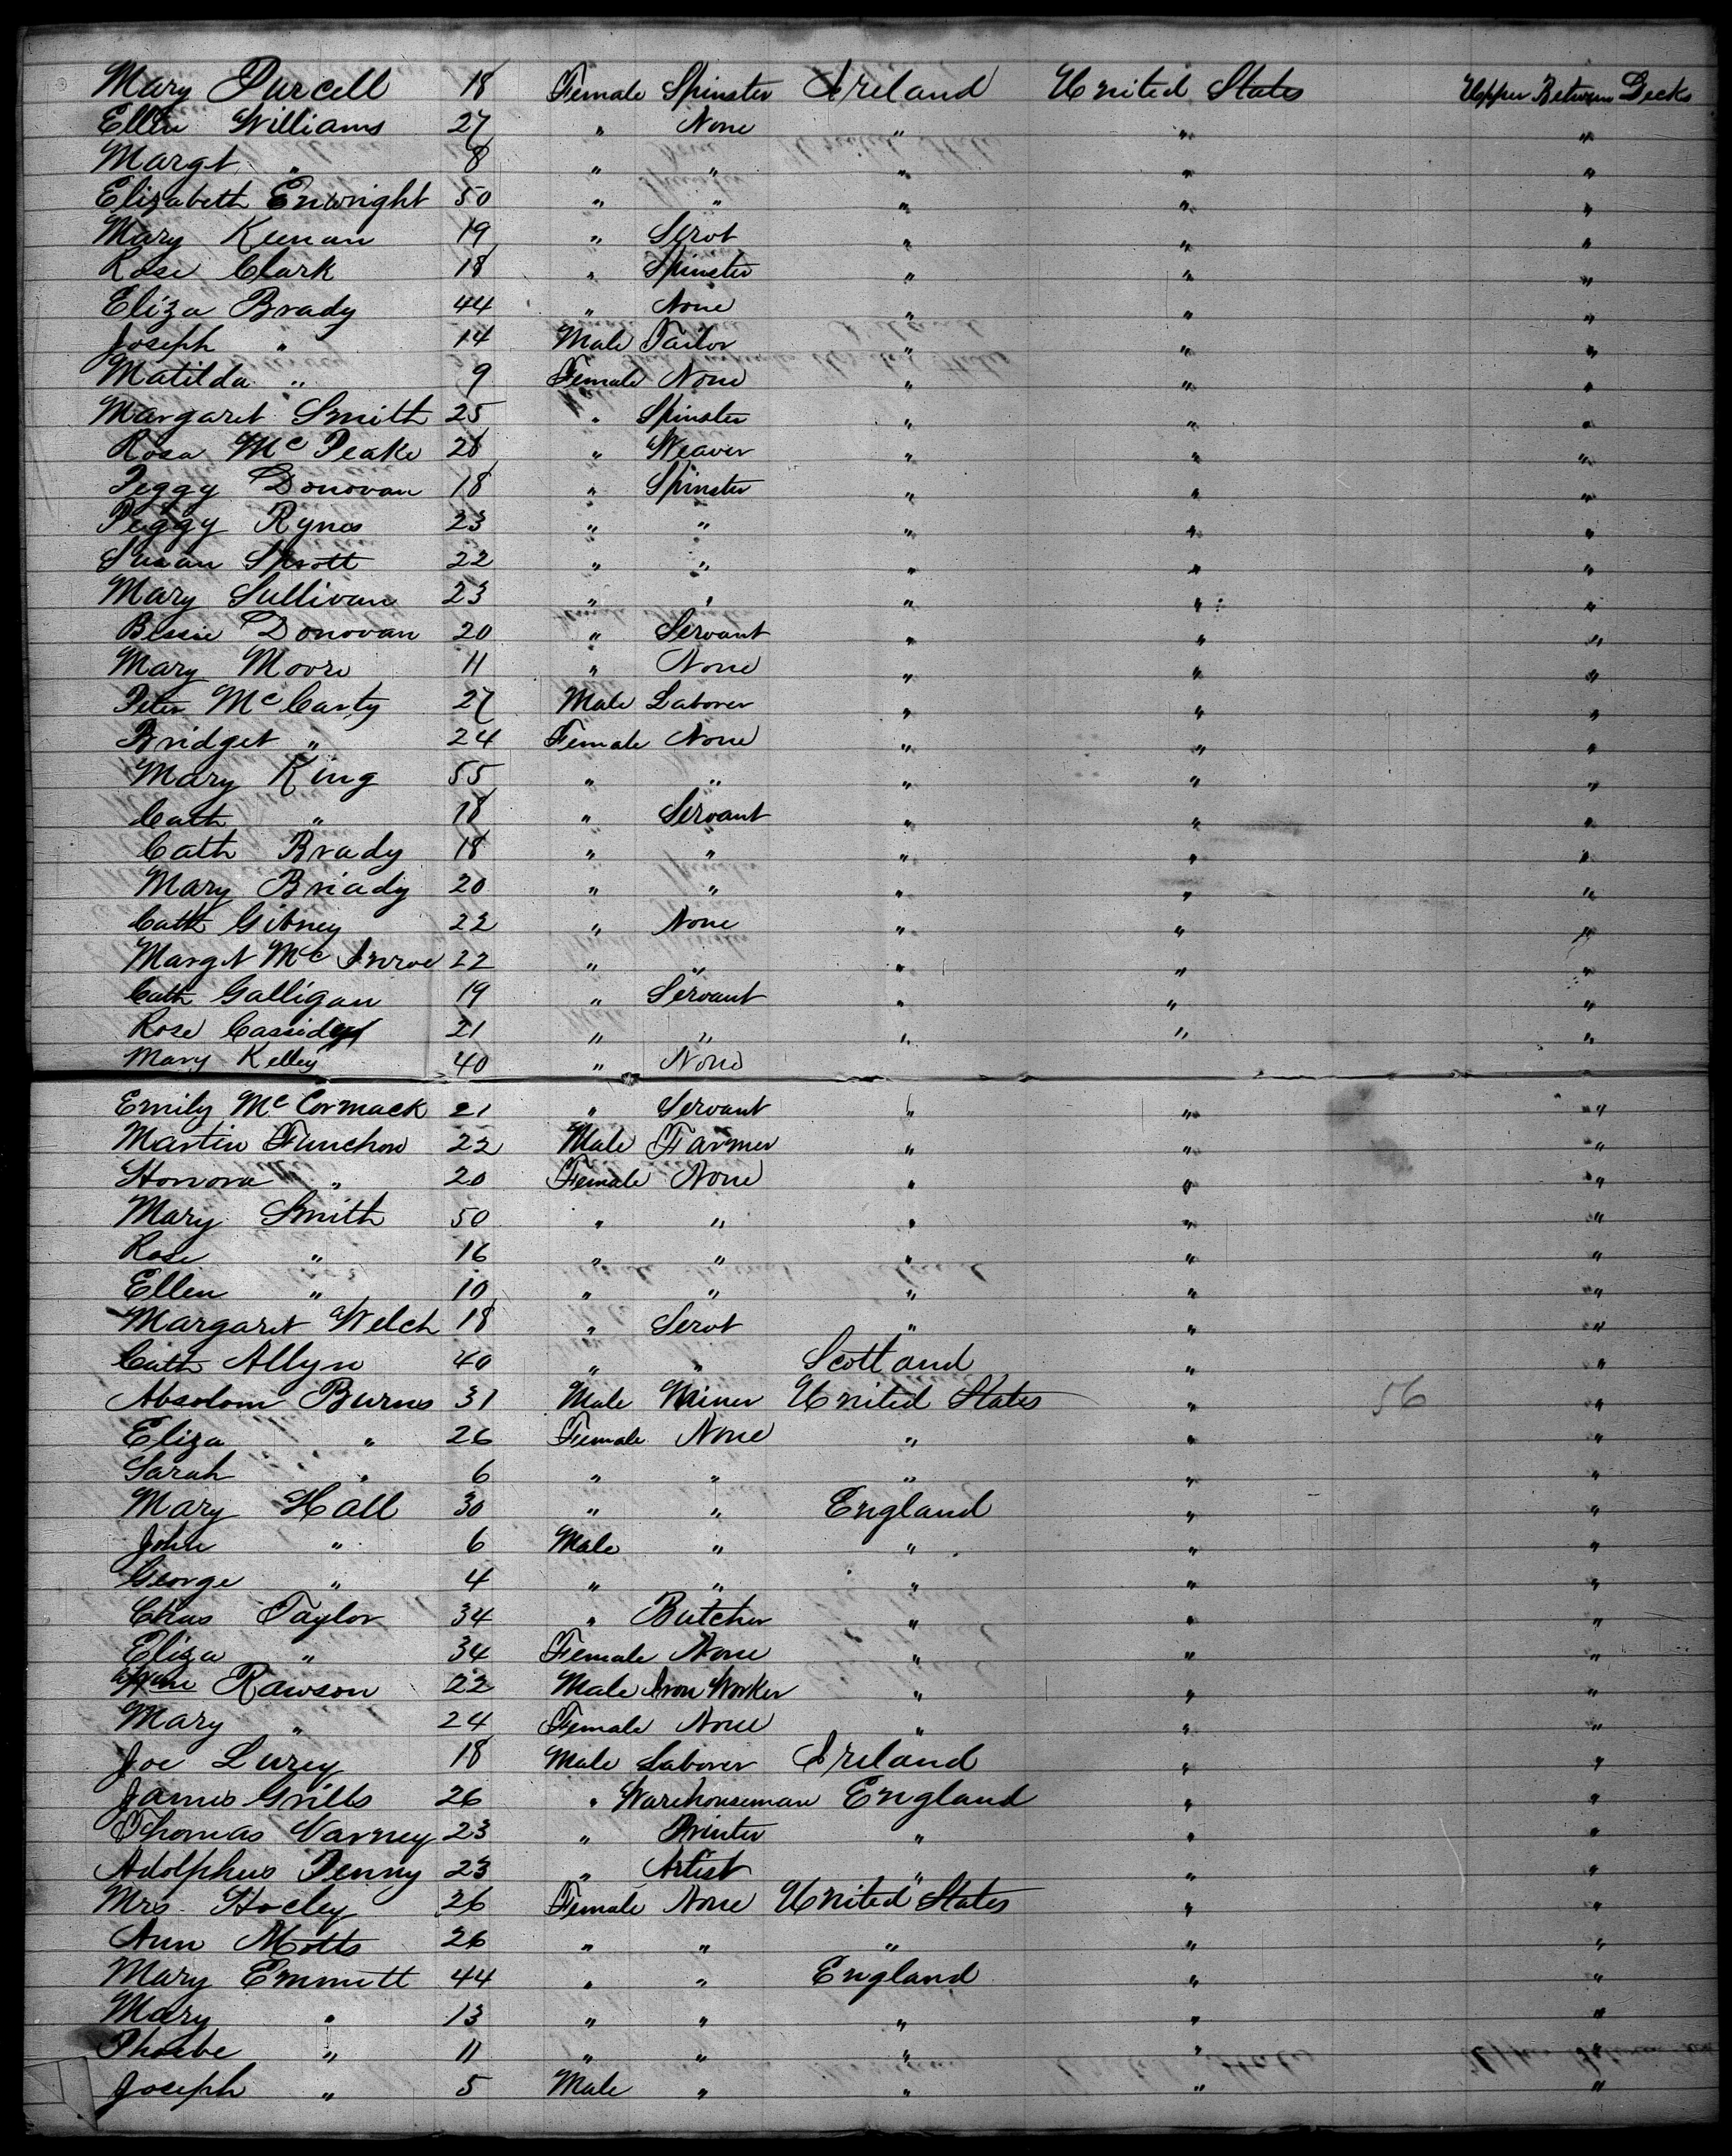 Mary Purcell 18 Female Spinster Ireland United States Upper Between Decks
Ellen Williams 27 " None " " "
Margt " 8 " " " " "
Elizabeth Enwright 50 " " " " "
Mary Keenan 19 " Servt " " "
Rose Clark 18 " Spinster " " "
Eliza Brady 44 " None " " "
Joseph " 14 Male Tailor " " "
Matilda " 9 Female None " " "
Margaret Smith 25 " Spinster " " "
Rosa McPeake 28 " Weaver " " "
Peggy Donovan 18 " Spinster " " "
Peggy Rynes 23 " " " " "
Susan Sprott 22 " " " " "
Mary Sullivan 23 " " " " "
Bessie Donovan 20 " Servant " " "
Mary Moore 11 " None " " "
Peter McCarty 27 Male Laborer " " "
Bridget " 24 Female None " " "
Mary King 55 " " " " "
Cath " 18 " Servant " " "
Cath Brady 18 " " " " "
Mary Briady 20 " " " " "
Cath Gibney 22 " None " " "
Margt McInroe 22 " " " " "
Cath Galligan 19 " Servant " " "
Rose Cassidy 21 " " " " "
Mary Kelley 40 " None
Emily McCormack 21 " Servant " " "
Martin Funchon 22 Male Farmer " " "
Honora " 20 Female None " " "
Mary Smith 50 " " " " "
Rose " 16 " " " " "
Ellen " 10 " " " " "
Margaret Welch 18 " Servt " " "
Cath Allyn 40 " " Scotland " "
Absolom Burns 31 Male Miner United States " 56 "
Eliza " 26 Female None " " "
Sarah " 6 " " " " "
Mary Hall 30 " " England " "
John " 6 Male " " " "
George " 4 " " " " "
Chas Taylor 34 " Butcher " " "
Eliza " 34 Female None " " "
Wm Rawson 22 Male Iron Worker " " "
Mary " 24 Female None " " "
Joe Lurey 18 Male Laborer Ireland " "
James Grills 26 " Warehouseman England " "
Thomas Varney 23 " Printer " " "
Adolphus Penny 23 " Artist " " "
Mrs. Hocley 26 Female None United States " "
Ann Motts 26 " " " " "
Mary Emmett 44 " " England " "
Mary " 13 " " " " "
Phoebe " 11 " " " " "
Joseph " 5 Male " " " "